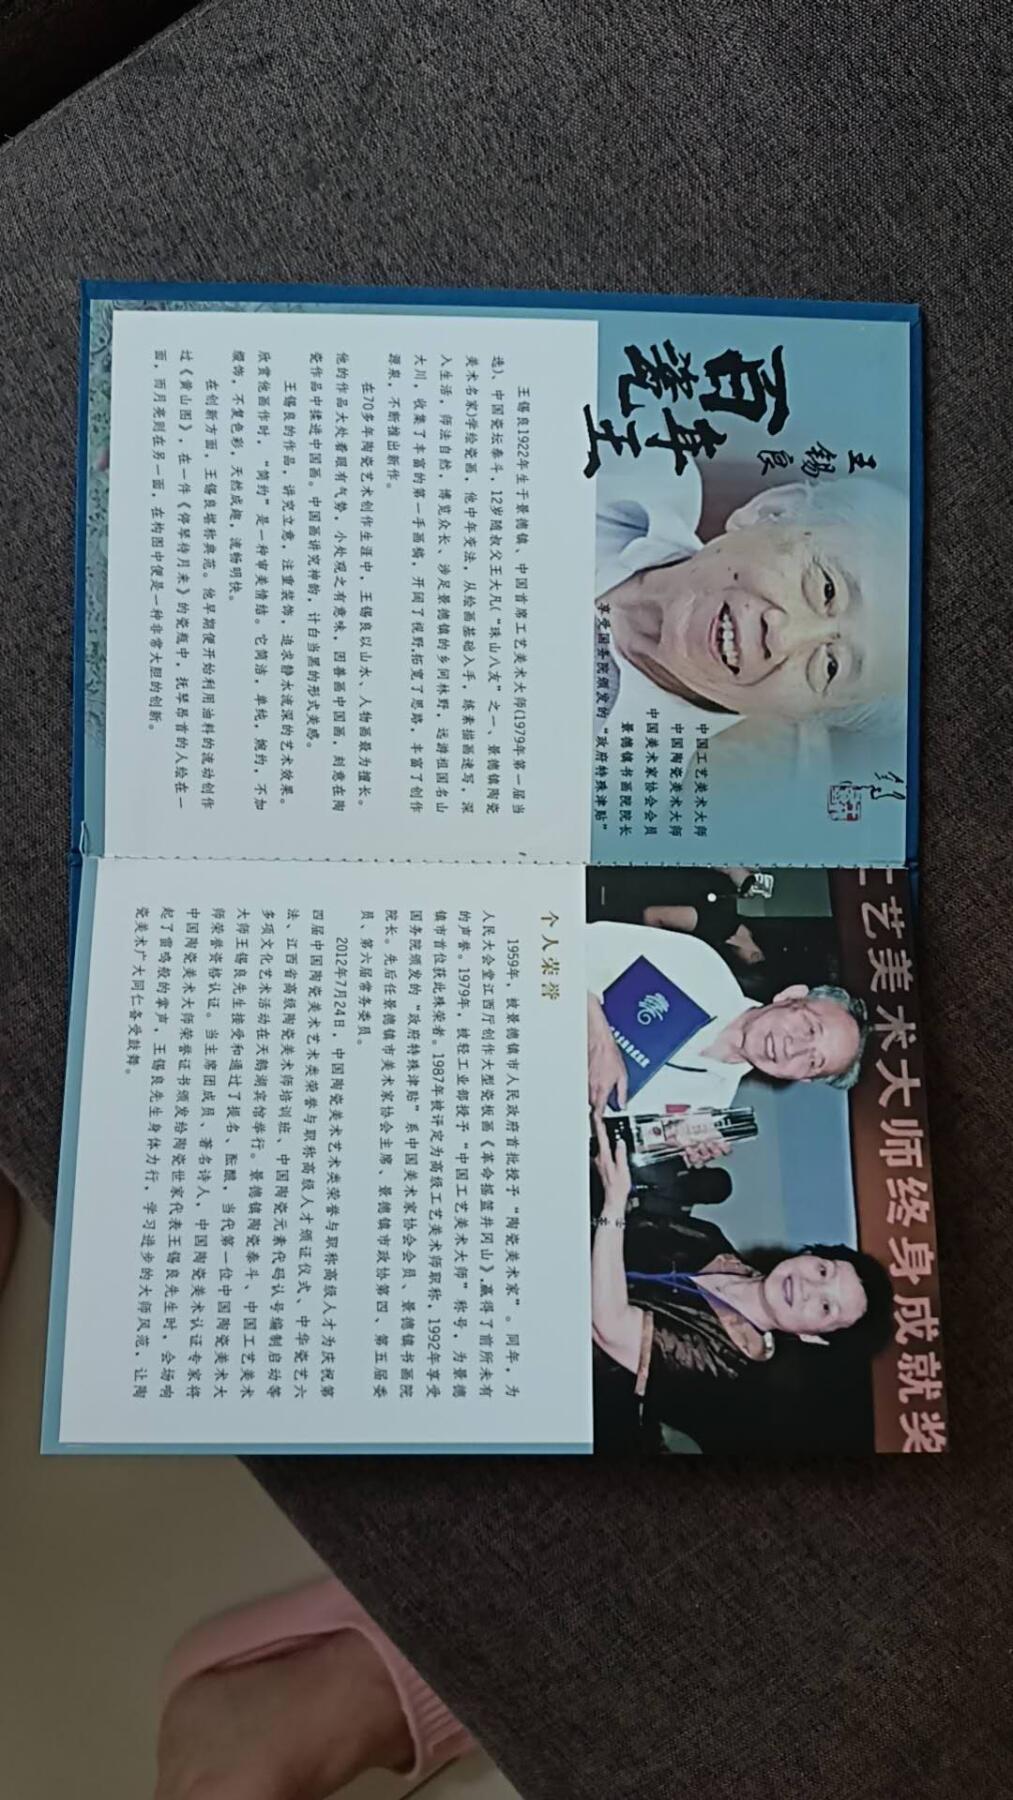 百年
瓷艺王
王锡良
中国工艺美术大师
中国陶瓷美术大师
中国美术家协会会员
景德镇书画院院长
享受国务院颁发的“政府特殊津贴”
王锡良1922年生于景德镇、中国首席工艺美术大师(1979年第一届当
选)、中国瓷坛泰斗,12岁随叔父王大凡(“珠山八友”之一、景德镇陶瓷
美术名家)学绘瓷画,他中年变法,从绘画基础入手,练素描画速写,深
入生活,师法自然,博览众长、涉足景德镇的乡间林野,远游祖国名山
大川,收集了丰富的第一手画稿,开阔了视野,拓宽了思路,丰富了创作
源泉,不断推出新作。
在70多年陶瓷艺术创作生涯中,王锡良以山水、人物画最为擅长。
他的作品大处着眼有气势,小处观之有意味,因善画中国画,刻意在陶
瓷作品中揉进中国画。中国画讲究神韵,计白当黑的形式美感。
王锡良的作品,讲究立意,注重装饰,追求静水流深的艺术效果。
欣赏他画作时,“简约”是一种审美情结。它简洁,单纯,婉约,不加
缀饰,不复色彩,天然成趣,流畅明快。
在创新方面,王锡良堪称典范。他早期便开始利用油料的流动创作
过《黄山图》,在一件《停琴待月来》的瓷瓶中,抚琴昂首的人绘在一
面,而月亮则在另一面,在构图中便是一种非常大胆的创新。
工艺美术大师终身成就奖
个人荣誉
1959年,被景德镇市人民政府首批授予“陶瓷美术家”。同年,为
人民大会堂江西厅创作大型瓷板画《革命摇篮井冈山》,赢得了前所未有
的声誉。1979年,被轻工业部授予“中国工艺美术大师”称号,为景德
镇市首位获此殊荣者。1987年被评定为高级工艺美术师职称,1992年享受
国务院颁发的“政府特殊津贴”系中国美术家协会会员、景德镇书画院
院长。先后任景德镇市美术家协会主席、景德镇市政协第四、第五届委
员、第六届常务委员。
2012年7月24日,中国陶瓷美术艺术类荣誉与职称高级人才为庆祝第
四届中国陶瓷美术艺术类荣誉与职称高级人才颁证仪式、中华瓷艺六
法、江西省高级陶瓷美术师培训班、中国陶瓷元素代码认号编制启动等
多项文化艺术活动在天鹅湖宾馆举行。景德镇陶瓷泰斗、中国工艺美术
大师王锡良先生接受和通过了提名、酝酿,当代第一位中国陶瓷美术大
师荣誉资格认证。当主席团成员、著名诗人,中国陶瓷美术认证专家将
中国陶瓷美术大师荣誉证书颁发给陶瓷世家代表王锡良先生时,会场响
起了雷鸣般的掌声,王锡良先生身体力行,学习进步的大师风范,让陶
瓷美术广大同仁备受鼓舞。